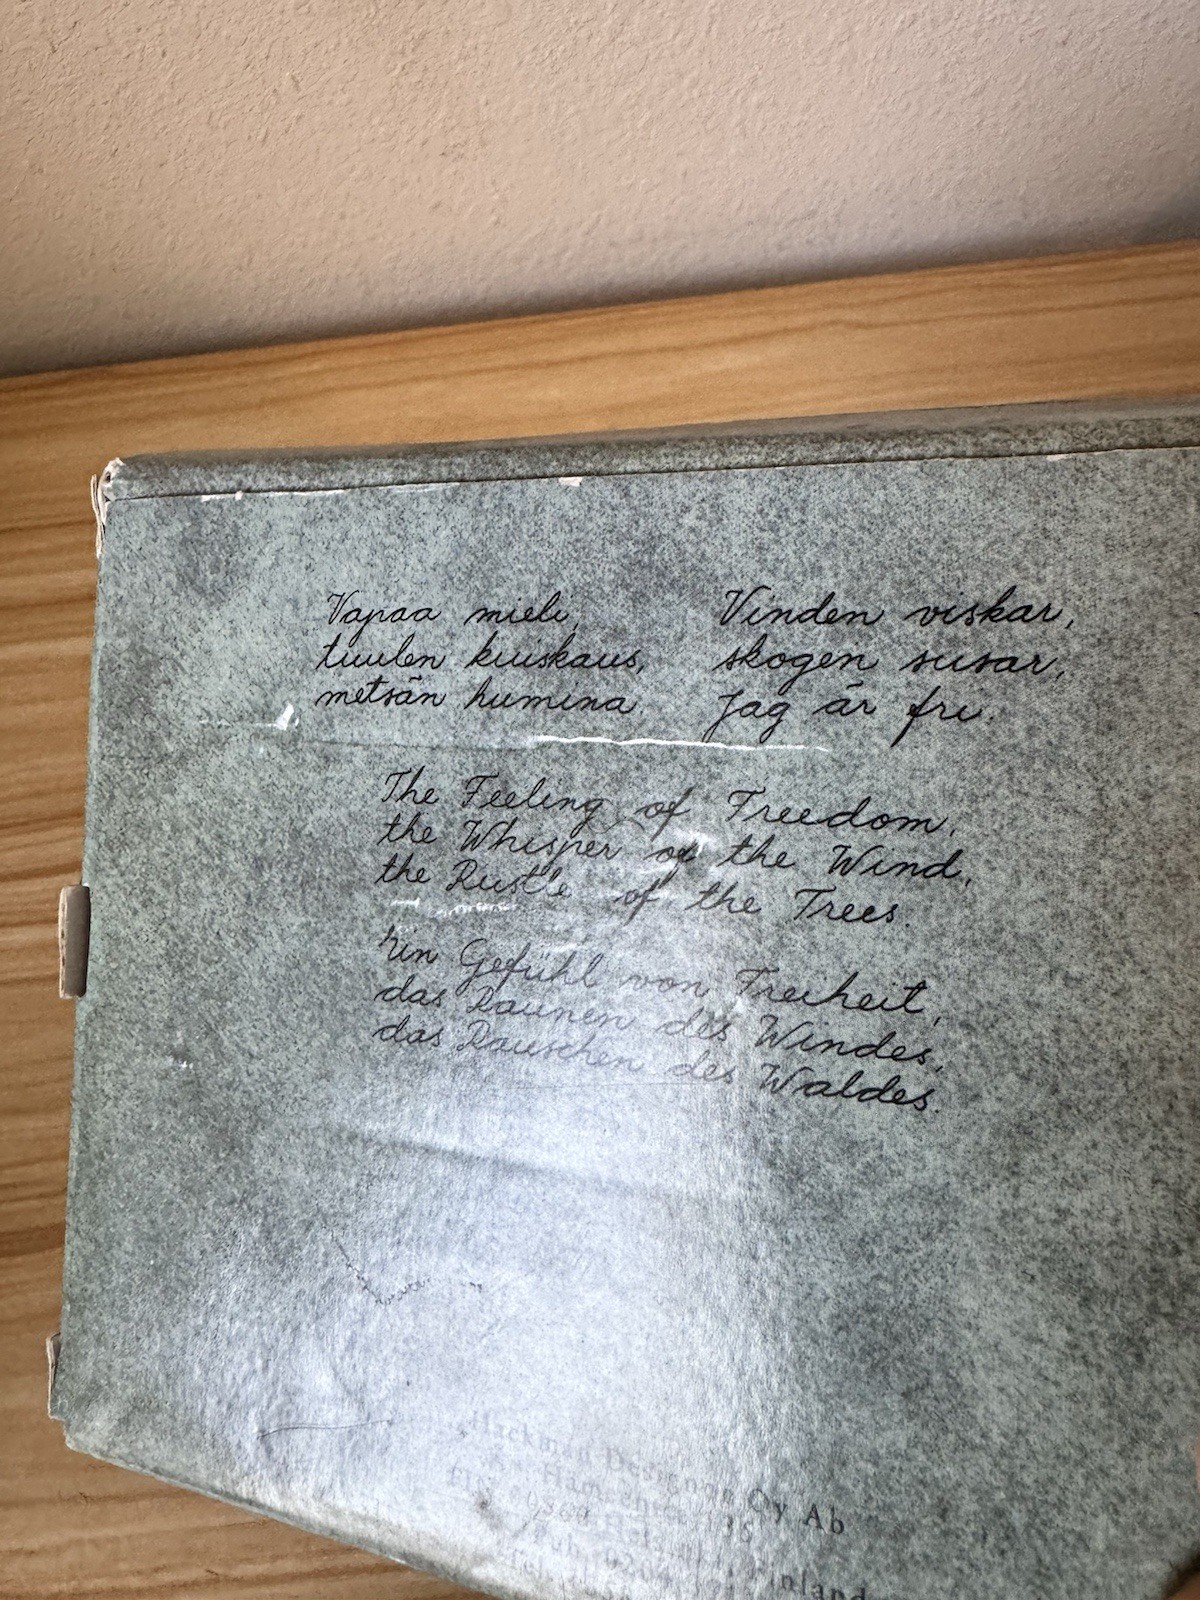 Vapaa mieli,
tuulen kuiskaus,
metsän humina.
Vinden viskar,
skogen susar,
Jag är fri.
The Feeling of Freedom,
the Whisper of the Wind,
the Rustle of the Trees.
Ein Gefühl von Freiheit,
das Raunen des Windes,
das Rauschen des Waldes.
Hackman Designor Oy Ab